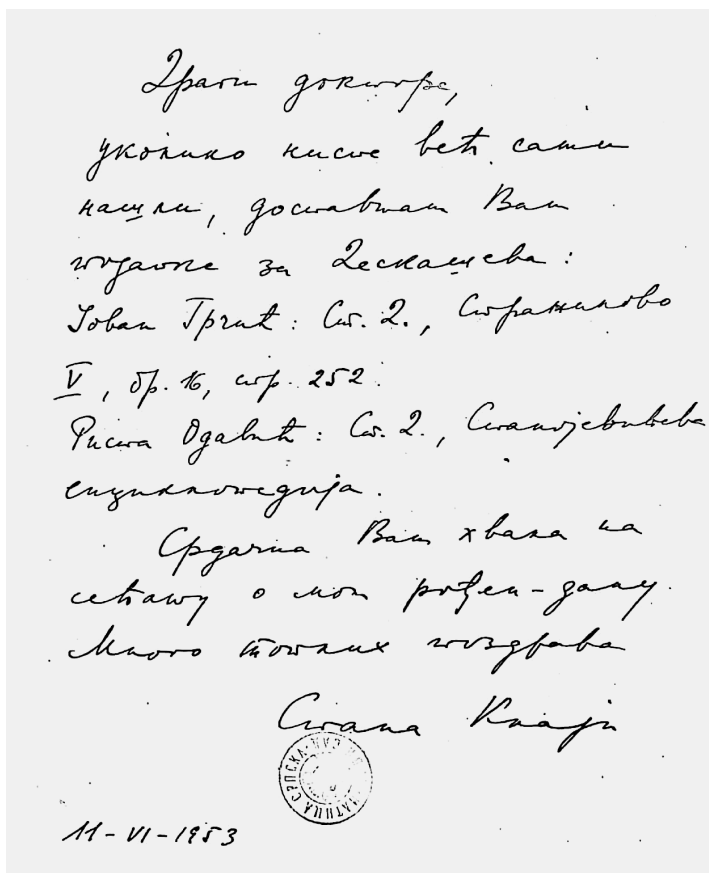 Драги докторе,
уколико нисте већ сами
нашли, достављам Вам
податке за Дескашева:
Јован Грчић: Ст. Д., Стражилово
V, бр. 16, стр. 252.
Риста Одавић: Ст. Д., Станојевићева
енциклопедија.
Срдачна Вам хвала на
сећању о мом рођен-дану.
Много топлих поздрава
Стана
МАТИЦА СРПСКА
11-VI-1953